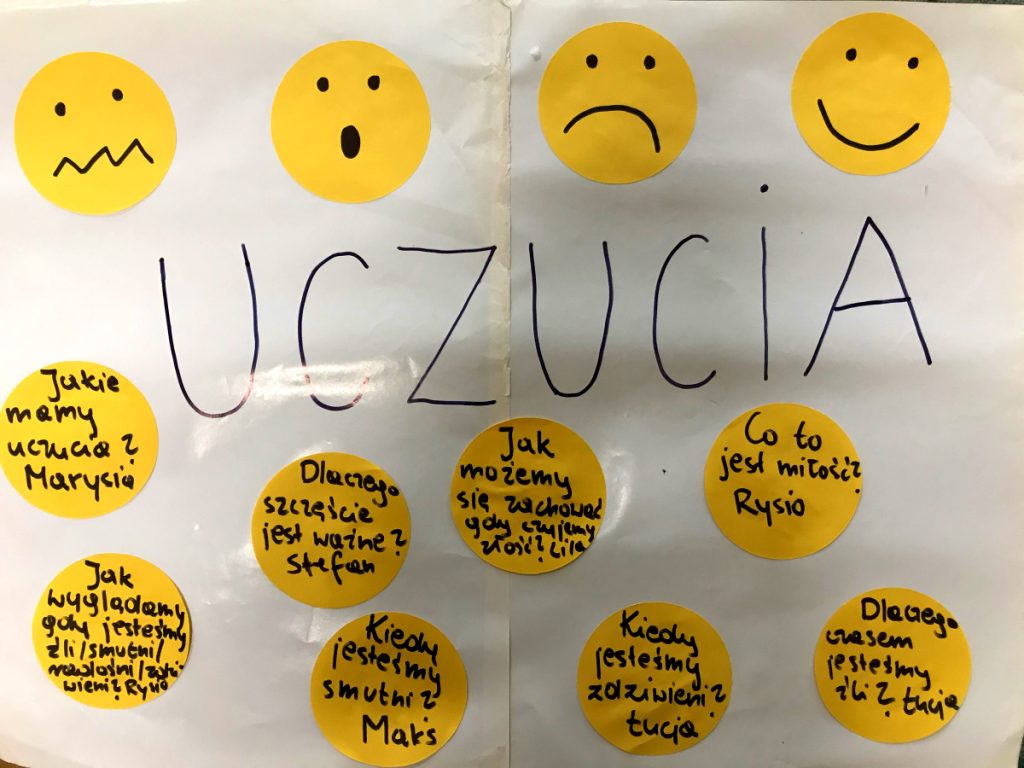 UCZUCiA
Jakie
mamy
uczucia?
Marysia
Dlaczego
szczęście
jest ważne?
Stefan
Jak
możemy
się zachować
gdy czujemy
złość? Lila
Co to
jest miłość?
Rysio
Jak
wyglądamy
gdy jesteśmy
źli/smutni/
Rysio
Kiedy
jesteśmy
smutni?
Maks
Kiedy
jesteśmy
zdziwieni?
Łucja
Dlaczego
czasem
jesteśmy
źli? Łucja